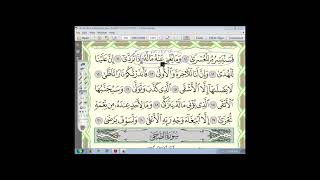 فَسَنُيَسِّرُهُ لِلْعُسْرَىٰ ١٠ وَمَا يُغْنِي عَنْهُ مَالُهُ إِذَا تَرَدَّىٰ ١١ إِنَّ عَلَيْنَا
لَلْهُدَىٰ ١٢ وَإِنَّ لَنَا لَلْآخِرَةَ وَالْأُولَىٰ ١٣ فَأَنذَرْتُكُمْ نَارًا تَلَظَّىٰ ١٤
لَا يَصْلَاهَا إِلَّا الْأَشْقَى ١٥ الَّذِي كَذَّبَ وَتَوَلَّىٰ ١٦ وَسَيُجَنَّبُهَا
الْأَتْقَى ١٧ الَّذِي يُؤْتِي مَالَهُ يَتَزَكَّىٰ ١٨ وَمَا لِأَحَدٍ عِندَهُ مِن نِّعْمَةٍ
تُجْزَىٰ ١٩ إِلَّا ابْتِغَاءَ وَجْهِ رَبِّهِ الْأَعْلَىٰ ٢٠ وَلَسَوْفَ يَرْضَىٰ ٢١
سُورَةُ الضُّحَىٰ